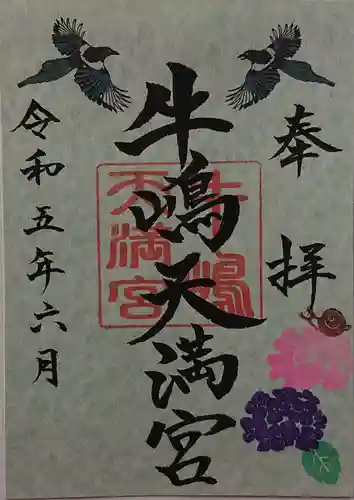 奉拝
牛嶋天満宮
牛嶋
天満宮
令和五年六月